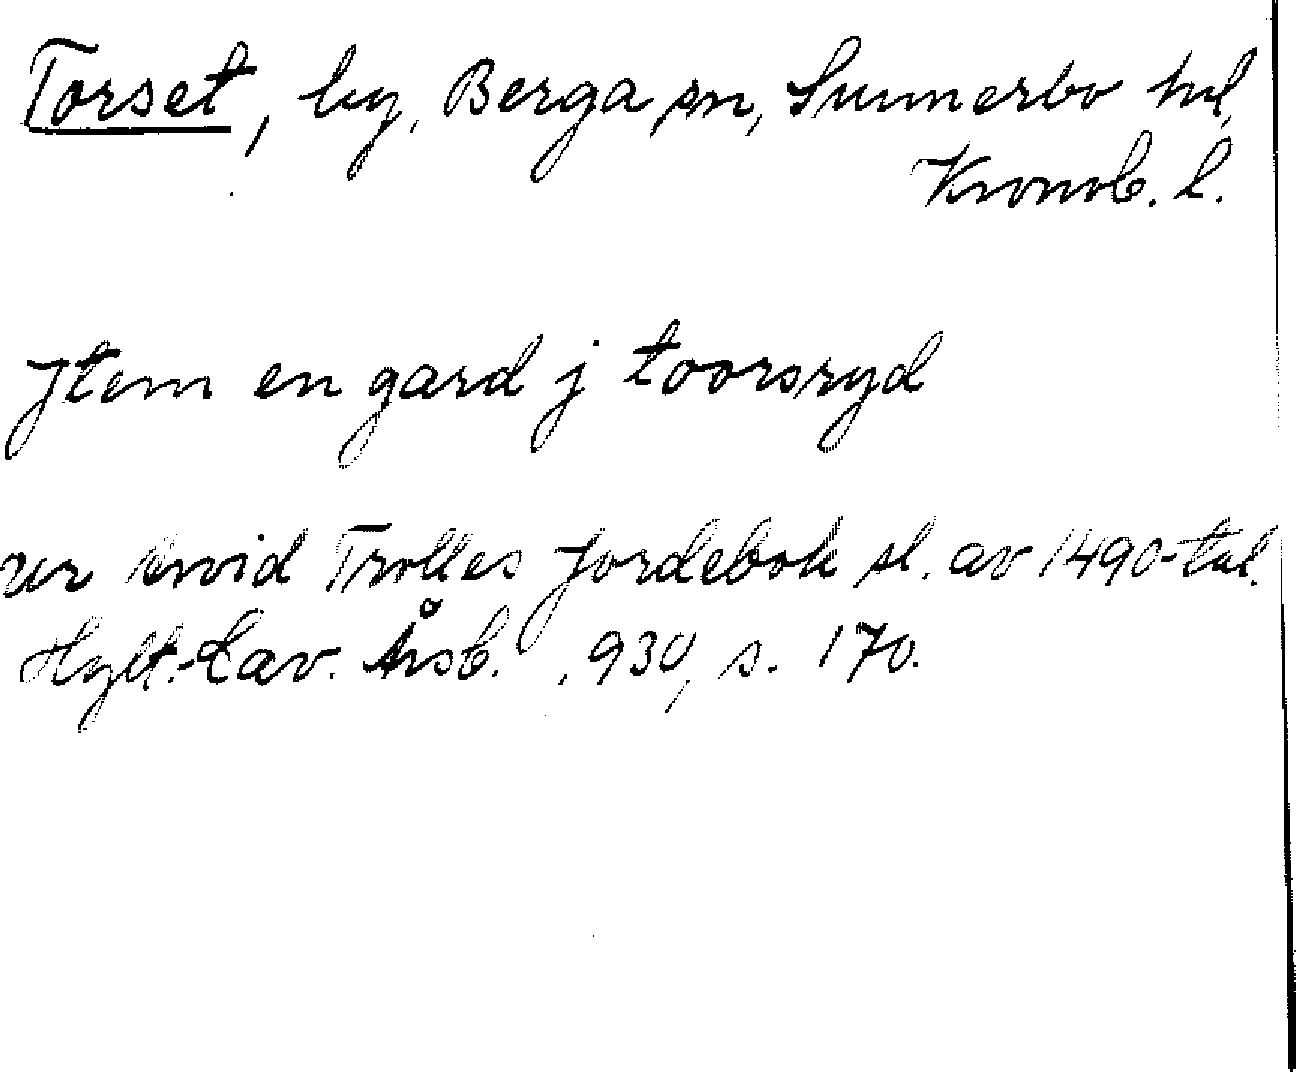 Torset, by, Berga sn, Sunnerbo hd,
Kronob. l.
Jtem en gard j toorsryd
ur Arvid Trolles Jordebok sl. av 1490-tal.
Hylt.-Cav. Årsb. 1930, s. 170.